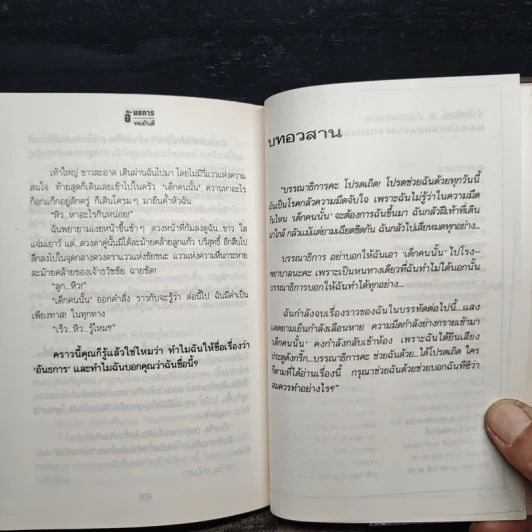 อันธการ
ทมยันตี
เท้าใหญ่ ขาวสะอาด เดินผ่านฉันไปมา โดยไม่มีวี่แววแห่งความ
สนใจ ท้ายสุดก็เดินเลยเข้าไปในครัว ‘เด็กคนนั้น’ ควานหาอะไร
ก็อกแก็กอยู่สักครู่ ก็เดินโครมๆ มายืนค้ำหัวฉัน
“หิว..หาอะไรกินหน่อย!”
ฉันพยายามเงยหน้าขึ้นช้าๆ ดวงหน้าที่ก้มลงดูฉัน..ขาว ใส
แจ่มเยาว์ แต่..ดวงตาคู่นั้นมิได้ละม้ายคล้ายลูกแก้ว บริสุทธิ์ อีกสืบไป
ลึกลงไปในจุดกลางดวงตราแววแห่งชัยชนะ แววแห่งความหื่นกระหาย
ละม้ายคล้ายของเจ้าธวัชชัย ฉายชัด!
“ลูก..หิว!”
‘เด็กคนนั้น’ ออกคำสั่ง ราวกับจะรู้ว่า ต่อนี้ไป ฉันมีค่าเป็น
เพียงทาส! ในทุกทาง
“เร็ว..หิว..รู้ไหม?”
คราวนี้คุณก็รู้แล้วใช่ไหมว่า ทำไมฉันให้ชื่อเรื่องว่า
‘อันธการ’ และทำไมฉันบอกคุณว่าฉันชื่อนี้?
บทอวสาน
“บรรณาธิการคะ โปรดเถิด! โปรดช่วยฉันด้วยทุกวันนี้
ฉันเป็นโรคกลัวความมืดจับใจ เพราะฉันไม่รู้ว่าในความมืด
‘เด็กคนนั้น’ จะต้องการฉันขึ้นมา ฉันกลัวฝีเท้าที่เดิน
มาใกล้ กลัวแม้แต่ยามเฉียดชิดกัน ฉันกลัวไปเสียหมดทุกอย่าง..
บรรณาธิการ อย่าบอกให้ฉันเอา ‘เด็กคนนั้น’ ไปโรง-
พยาบาลนะคะ เพราะเป็นหนทางเดียวที่ฉันทำไม่ได้นอกนั้น
บรรณาธิการบอกให้ฉันทำได้ทุกอย่าง...
ฉันกำลังจบเรื่องราวของฉันในบรรทัดต่อไปนี้...แสง
แดดยามเย็นกำลังเลือนหาย ความมืดกำลังย่างกรายเข้ามา
‘เด็กคนนั้น’ คงกำลังกลับเข้าห้อง เพราะฉันได้ยินเสียง
ประตูดังกริ๊ก..บรรณาธิการคะ ช่วยฉันด้วย...ได้โปรดเถิด ใคร
ก็ตามที่ได้อ่านเรื่องนี้ กรุณาช่วยฉันด้วยช่วยบอกฉันทีซิว่า
ฉันควรทำอย่างไร?”